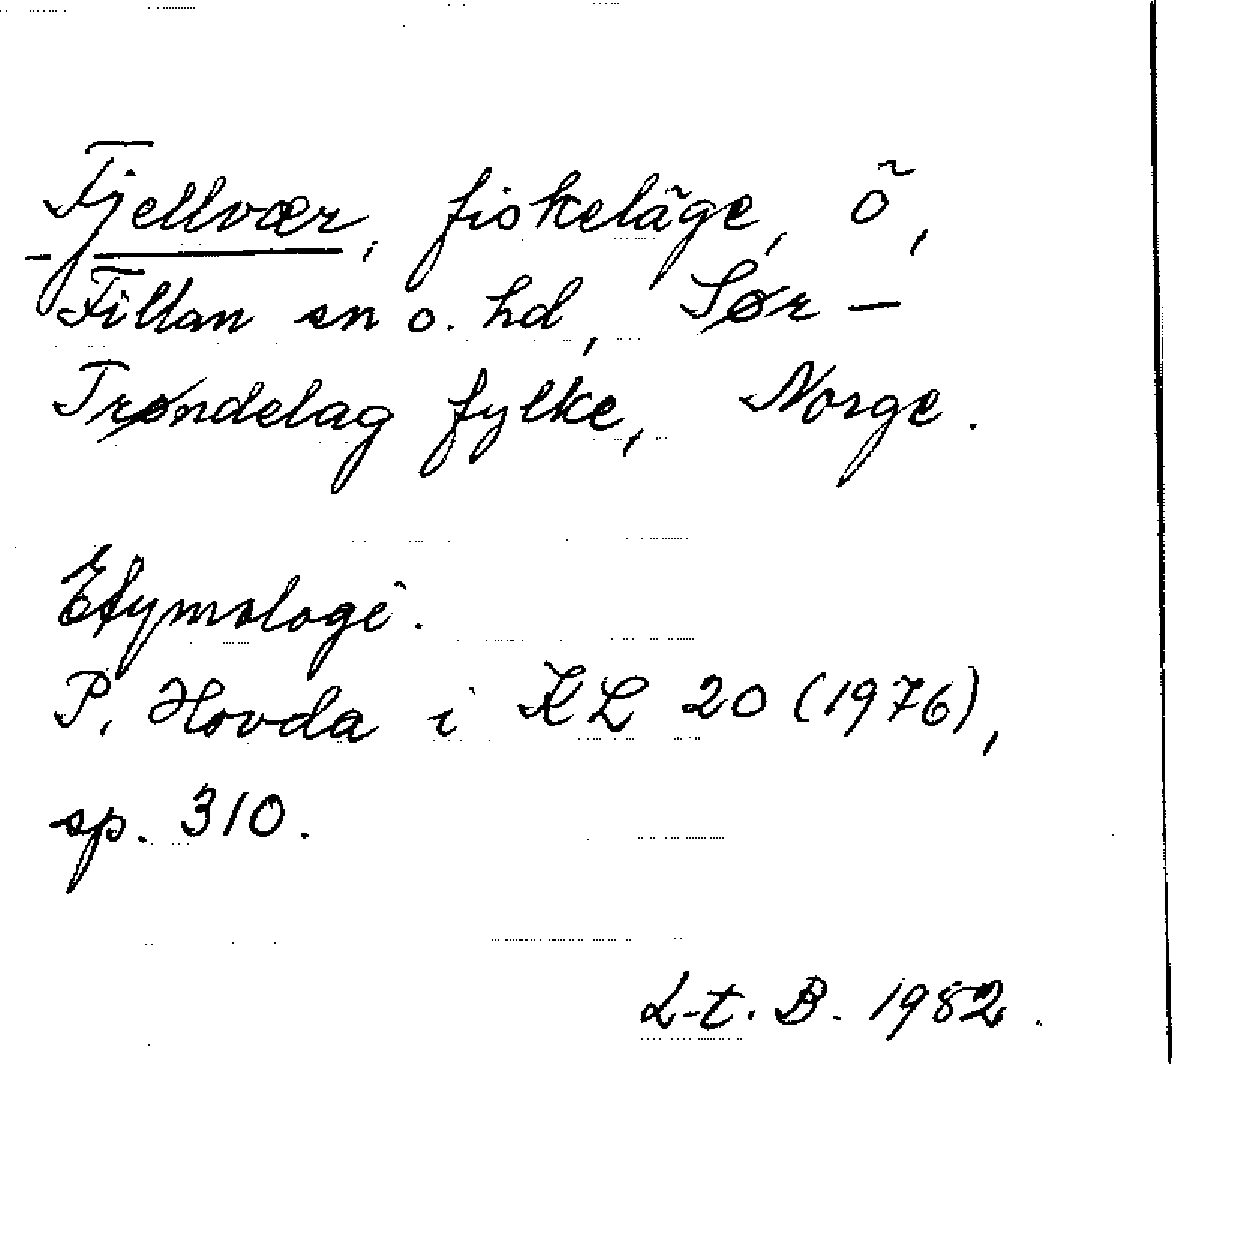 Fjellvær, fiskeläge, ö,
Fillan sn o. hd, Sør-
Trøndelag fylke, Norge.
Etymologi.
P. Hovda i KL 20 (1976),
sp. 310.
L-t. B. 1982.